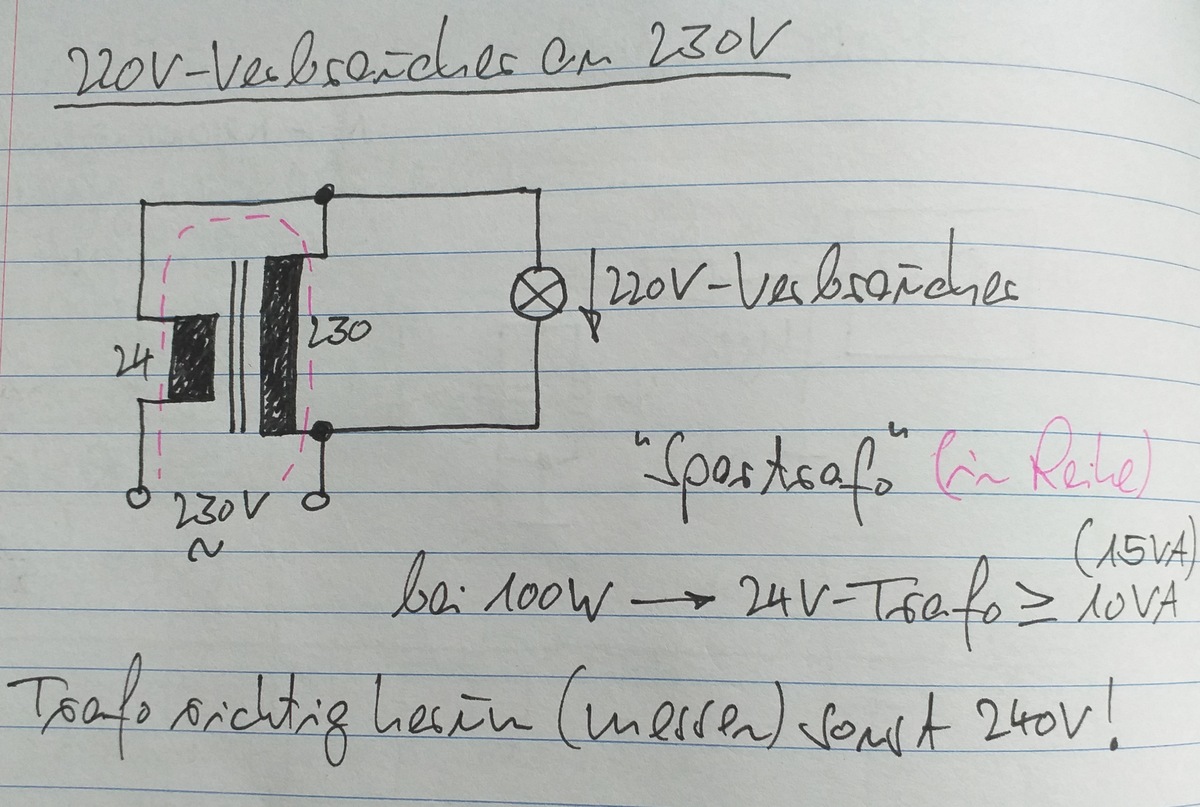 220V-Verbraucher an 230V
220V-Verbraucher
24
230
230V
~
"Spartrafo" (in Reihe)
(15VA)
bei 100W → 24V-Trafo ≥ 10VA
Trafo richtig herum (messen) sonst 240V!